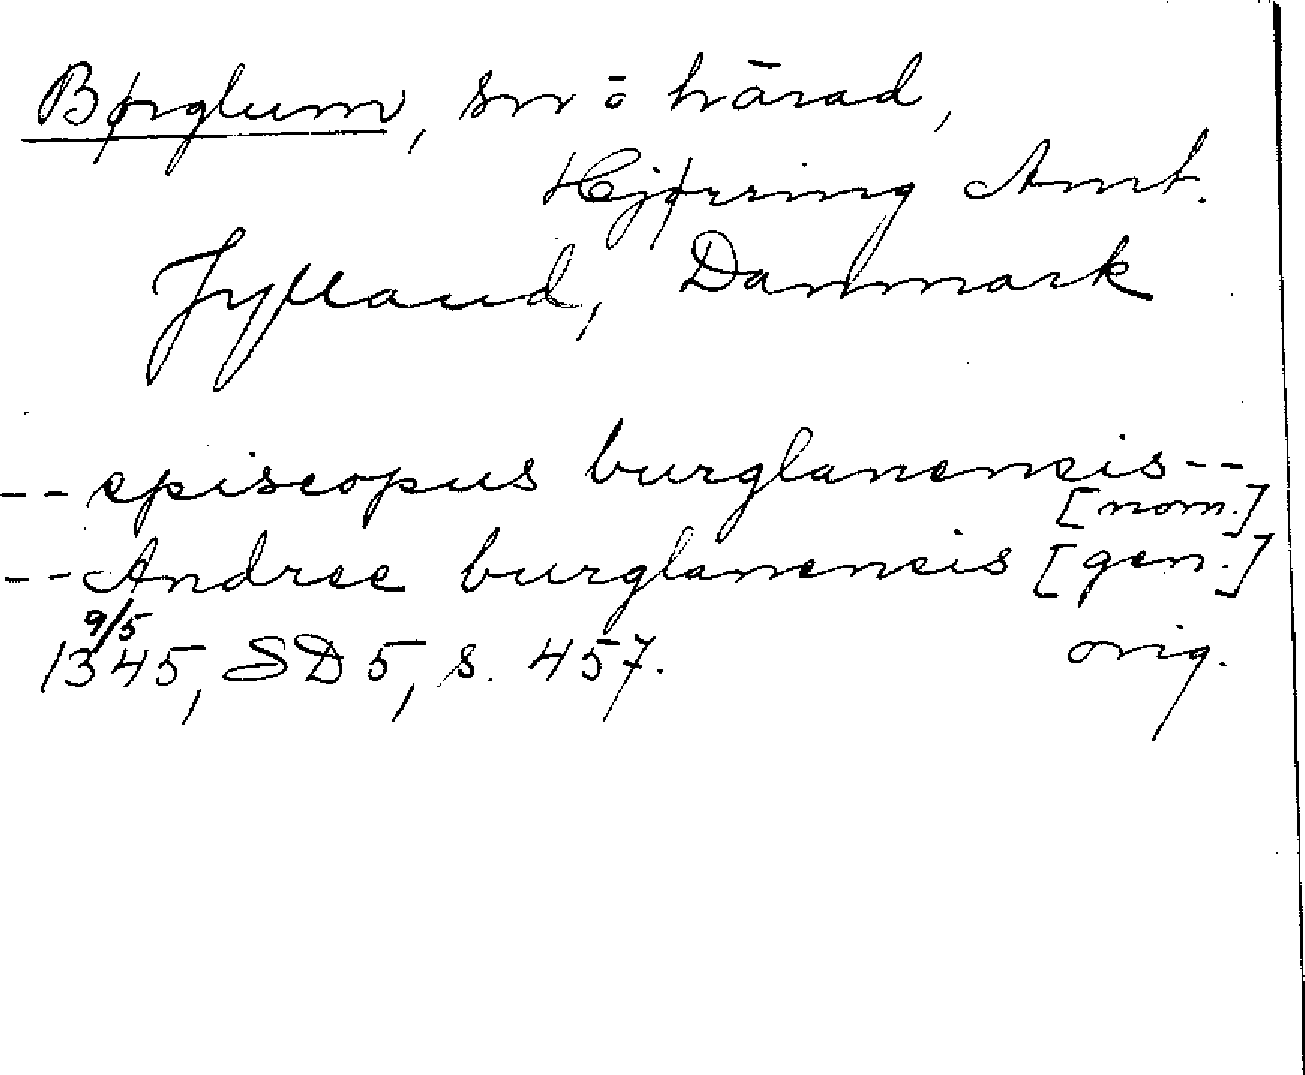 Børglum, sn o härad,
Hjørring Amt.
Jylland, Danmark
-- episcopus burglanensis --
[nom.]
-- Andree burglanensis [gen.]
9/5
1345, SD 5, s. 457. orig.